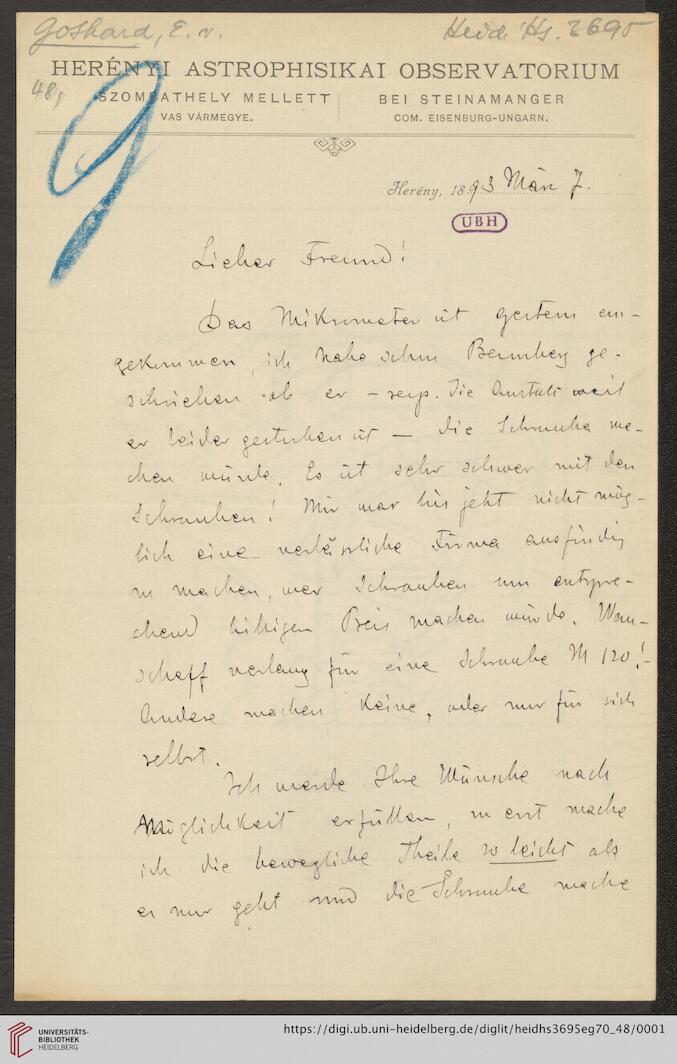 Gothard, E. v.
Heid. Hs. 3695
48,
HERÉNYI ASTROPHISIKAI OBSERVATORIUM
SZOMBATHELY MELLETT
BEI STEINAMANGER
VAS VÁRMEGYE.
COM. EISENBURG-UNGARN.
Herény, 1893 März 7.
UBH
Lieber Freund!
Das Mikrometer ist gestern ein-
gekommen, ich habe schon Bamberg ge-
schrieben ob er – resp. die Anstalt weil
er leider gestorben ist – die Schraube ma-
chen würde. Es ist sehr schwer mit den
Schrauben! Mir war bis jetzt nicht mög-
lich eine verlässliche Firma ausfindig
zu machen, wer Schrauben um entspre-
chend billigen Preis machen würde. Wan-
schaff verlang für eine Schraube M 120!-
Andere machen keine, oder nur für sich
selbst.
Ich werde Ihre Wünsche nach
Möglichkeit erfüllen, zu erst mache
ich die bewegliche Theile so leicht als
es nur geht und die Schraube mache
UNIVERSITÄTS-
BIBLIOTHEK
HEIDELBERG
https://digi.ub.uni-heidelberg.de/diglit/heidhs3695eg70_48/0001